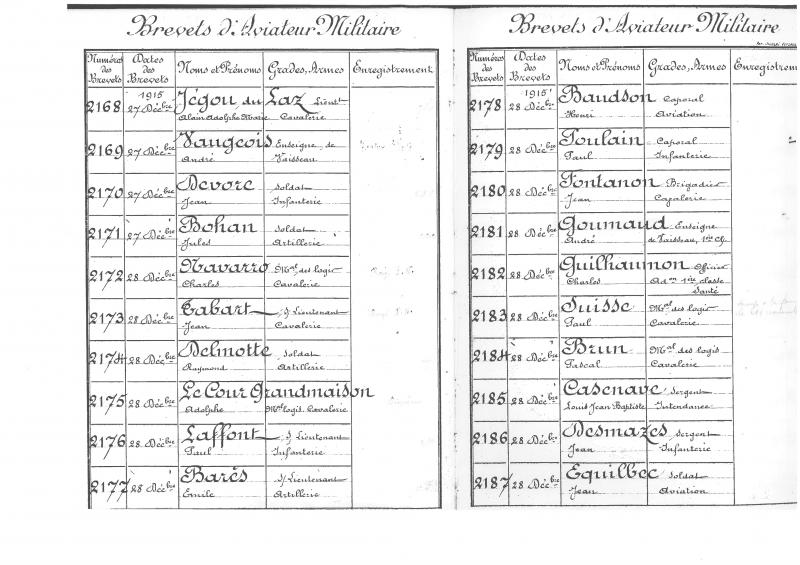 Brevets d'Aviateur Militaire
Numéros des Brevets
Dates des Brevets
Noms et Prénoms
Grades, Armes
Enregistrement
2168 1915 27 Décbre Jégou du Laz Lieutt
Alain Adolphe Marie Cavalerie
2169 27 Décbre Vaugeois Enseigne de
André Vaisseau
2170 27 Décbre Devorc Soldat
Jean Infanterie
2171 27 Décbre Bohan Soldat
Jules Artillerie
2172 28 Décbre Navarro Mal des logis
Charles Cavalerie
2173 28 Décbre Tabart s/ Lieutenant
Jean Cavalerie
2174 28 Décbre Delmotte Soldat
Raymond Artillerie
2175 28 Décbre Le Cour Grandmaison
Adolphe Mal logis. Cavalerie
2176 28 Décbre Laffont s/ Lieutenant
Paul Infanterie
2177 28 Décbre Barès s/ Lieutenant
Emile Artillerie
Brevets d'Aviateur Militaire
Numéros des Brevets
Dates des Brevets
Noms et Prénoms
Grades, Armes
Enregistrem
2178 1915 28 Décbre Baudson Caporal
Henri Aviation
2179 28 Décbre Poulain Caporal
Paul Infanterie
2180 28 Décbre Fontanon Brigadier
Jean Cavalerie
2181 28 Décbre Goumaud Enseigne
André de Vaisseau, 1ère Cl.
2182 28 Décbre Guilhaumon Officier
Charles Adon 1ère classe
Santé
2183 28 Décbre Suisse Mal des logis
Paul Cavalerie
2184 28 Décbre Brun Mal des logis
Pascal Cavalerie
2185 28 Décbre Casenave Sergent
Louis Jean Baptiste Intendance
2186 28 Décbre Desmazes Sergent
Jean Infanterie
2187 28 Décbre Equilbec Soldat
Jean Aviation